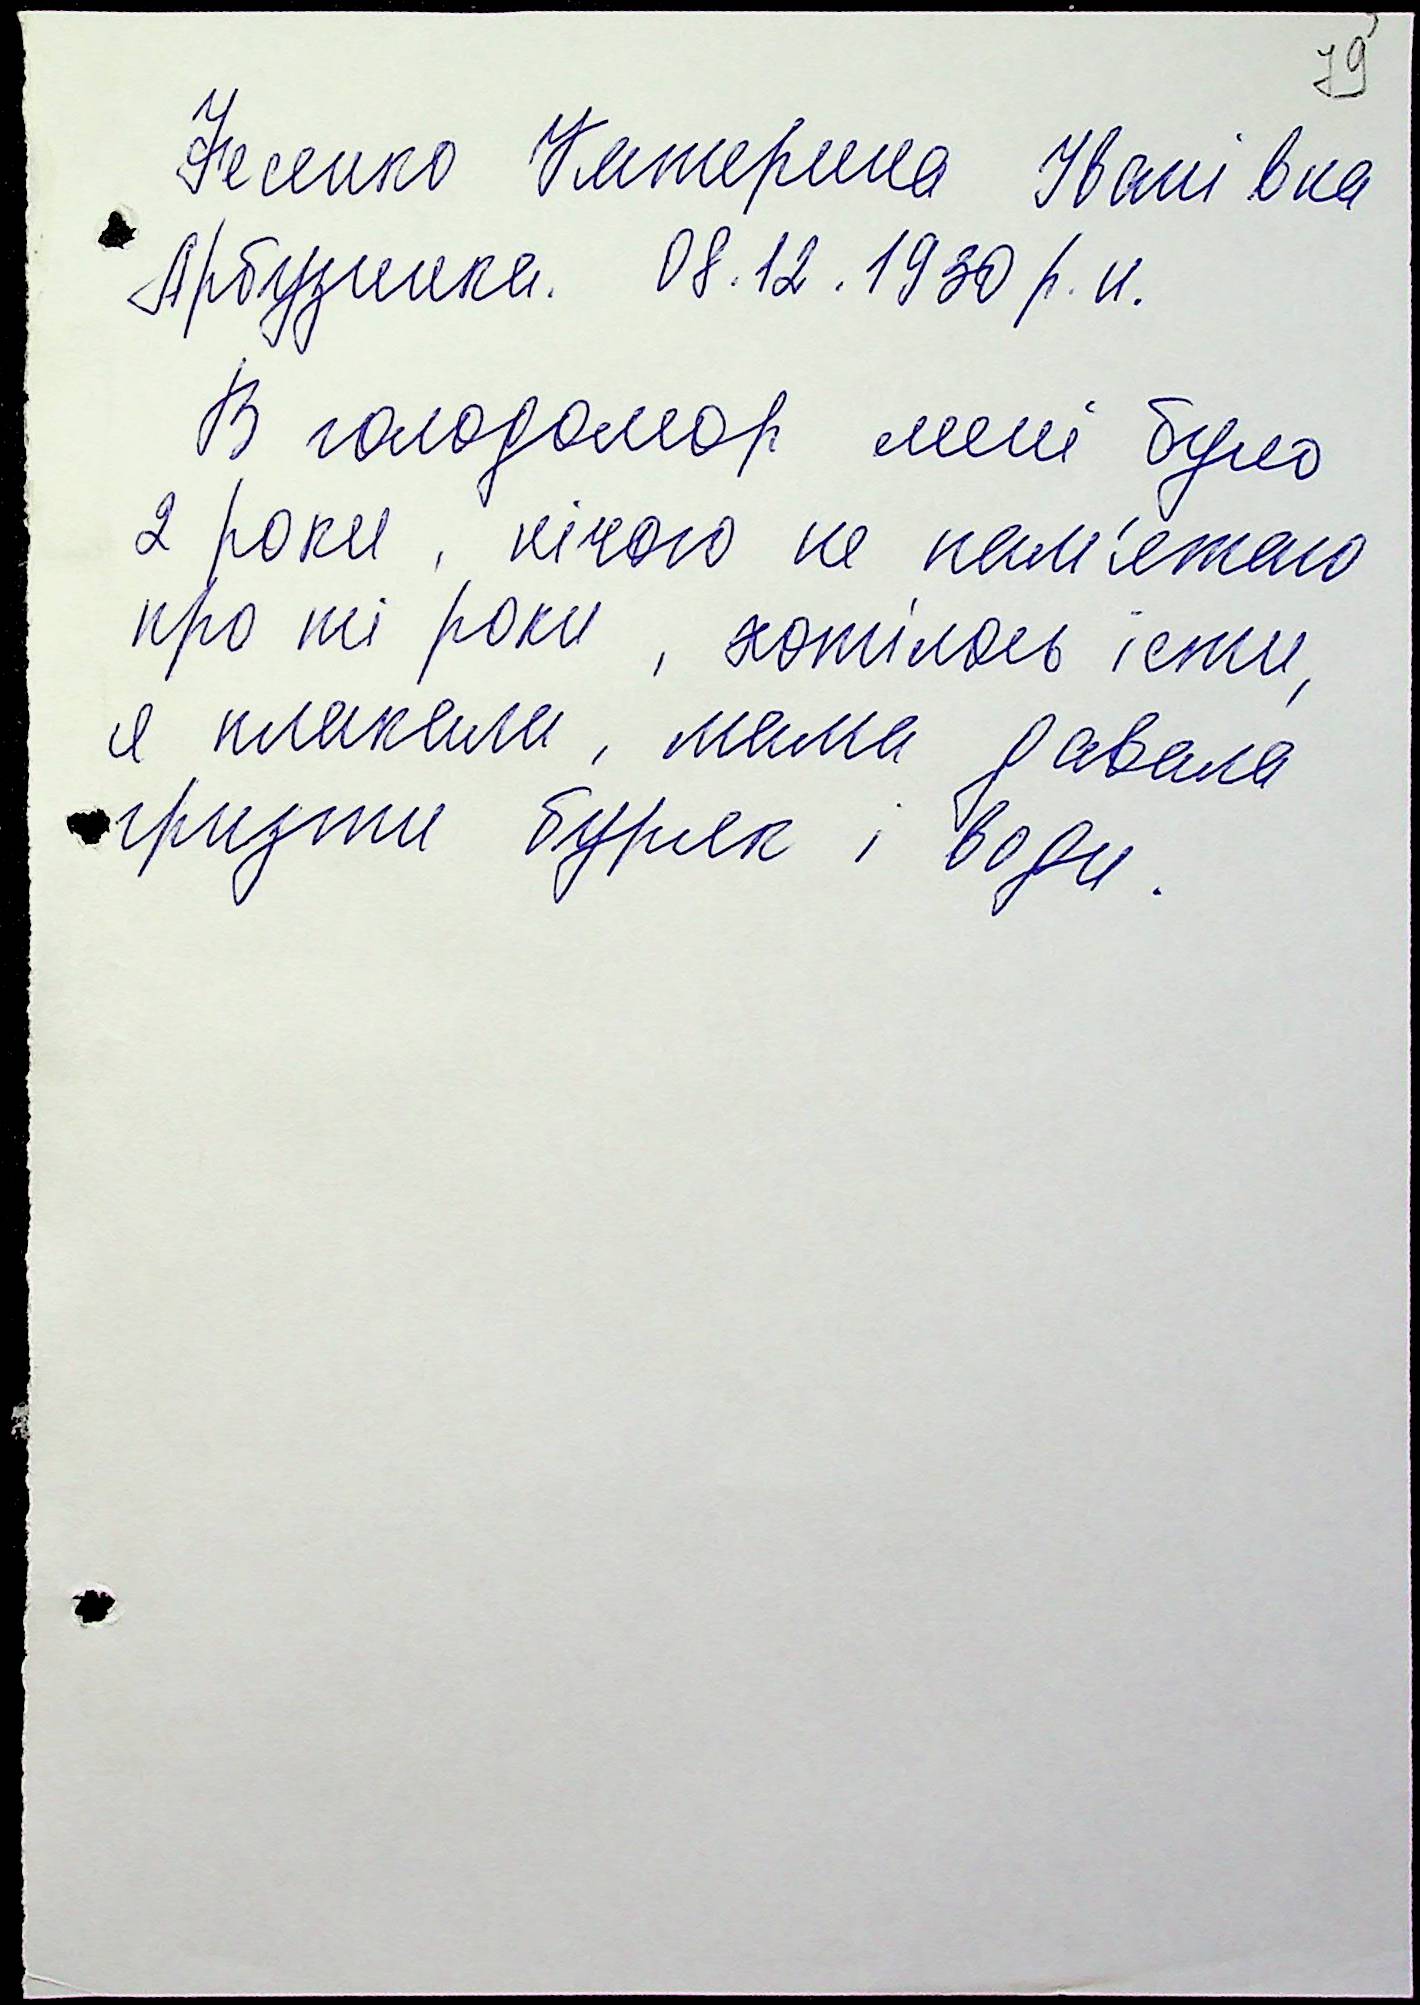 79
Фесенко Катерина Іванівна
Арбузинка. 08.12.1930 р.н.
В голодомор мені було
2 роки, нічого не пам'ятаю
про ті роки, хотілось їсти,
я плакала, мама давала
гризти буряк і води.